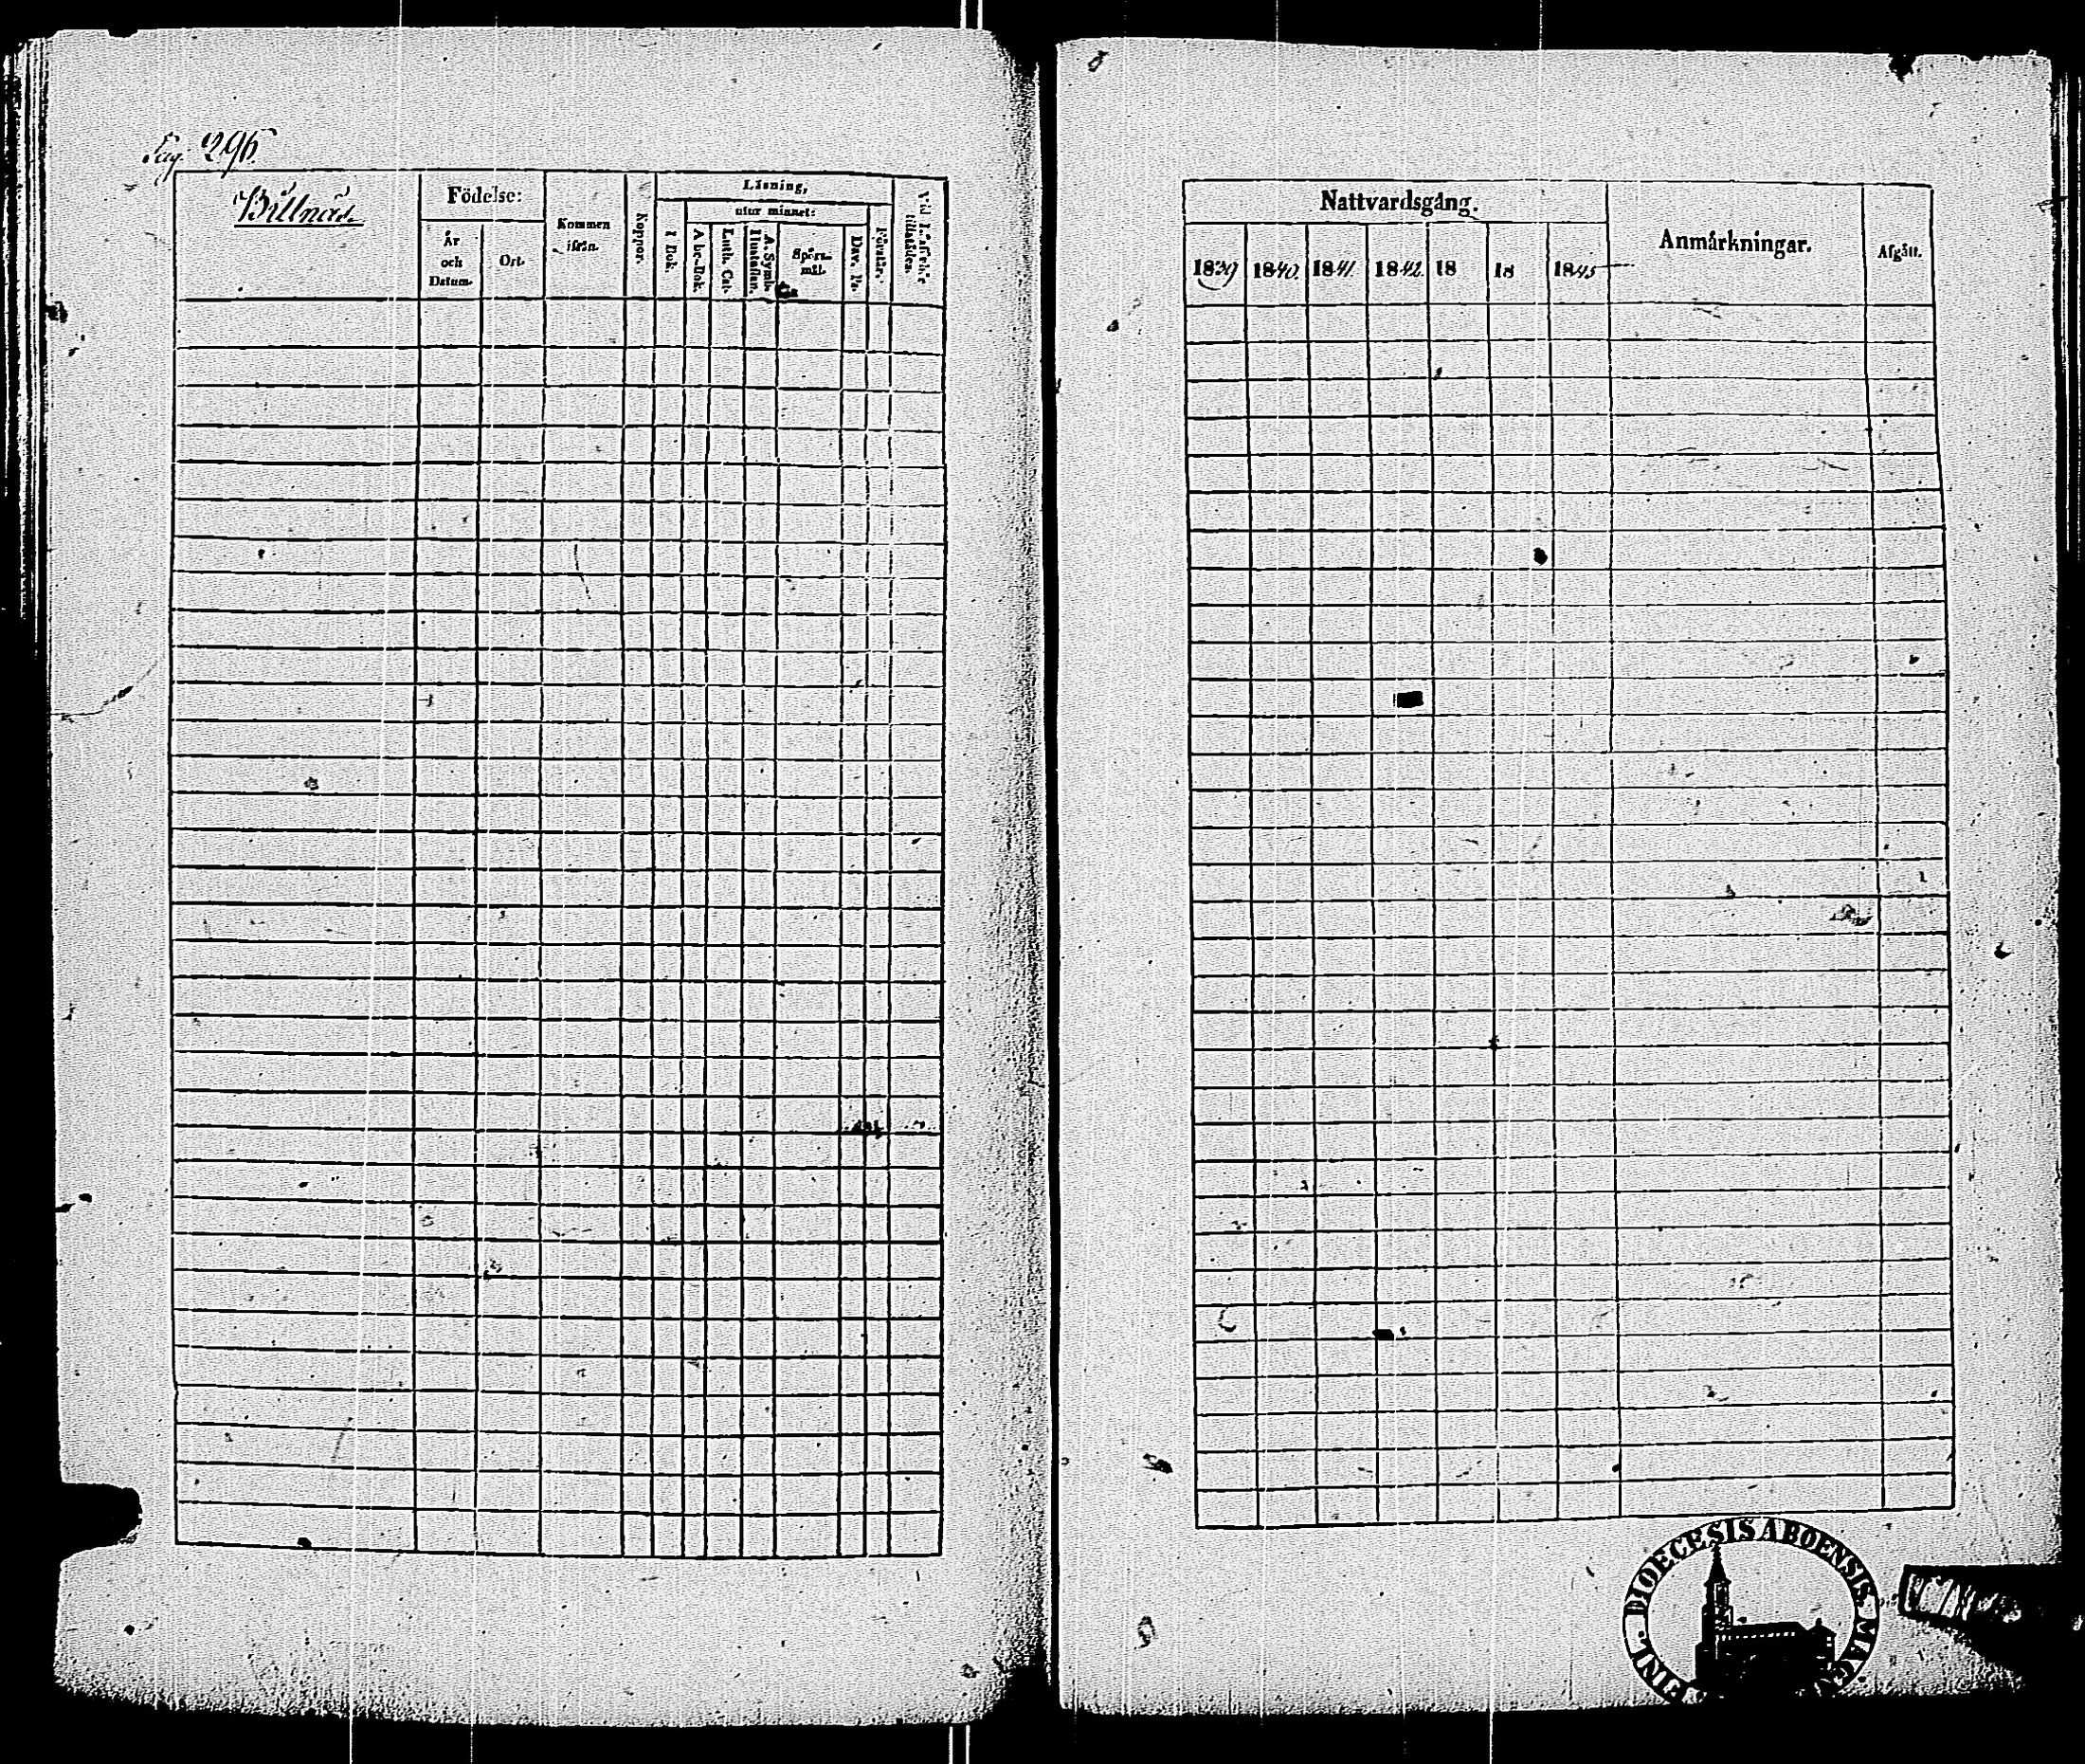 Pag. 296.
Billnäs.
Födelse:
År
och
Datum.
Ort.
Kommen
ifrån.
Koppor.
Läsning,
utur minnet:
I Bok.
Abc-Bok.
Luth. Cat.
A. Symb.
Hustaflan.
Spörs-
mål.
Dav. Ps.
Förstår.
Vid Läsförhör
tillstädes.
Nattvardsgång.
1839
1840.
1841.
1842.
18
18
1845
Anmärkningar.
Afgått.
DIOECESIS ABOENSIS. MAG
FINL.